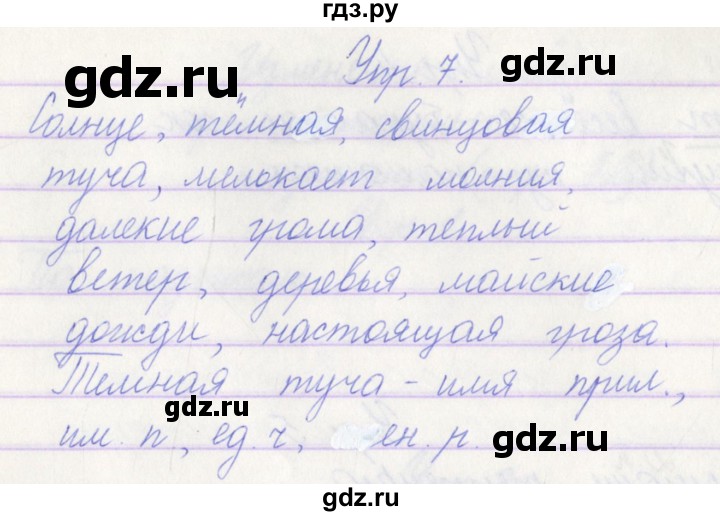 гдз.ру
gdz.ru
gdz.ru
Упр. 7.
Солнце, тёмная, свинцовая
туча, мелокает молния,
далекие грома, теплый
gdz.ru
ветер, деревья, майские
дожди, настоящая гроза.
Темная туча - имя прил.,
gdz.ru
им. п., ед. ч., ен. р.
gdz.ru
gdz.ru